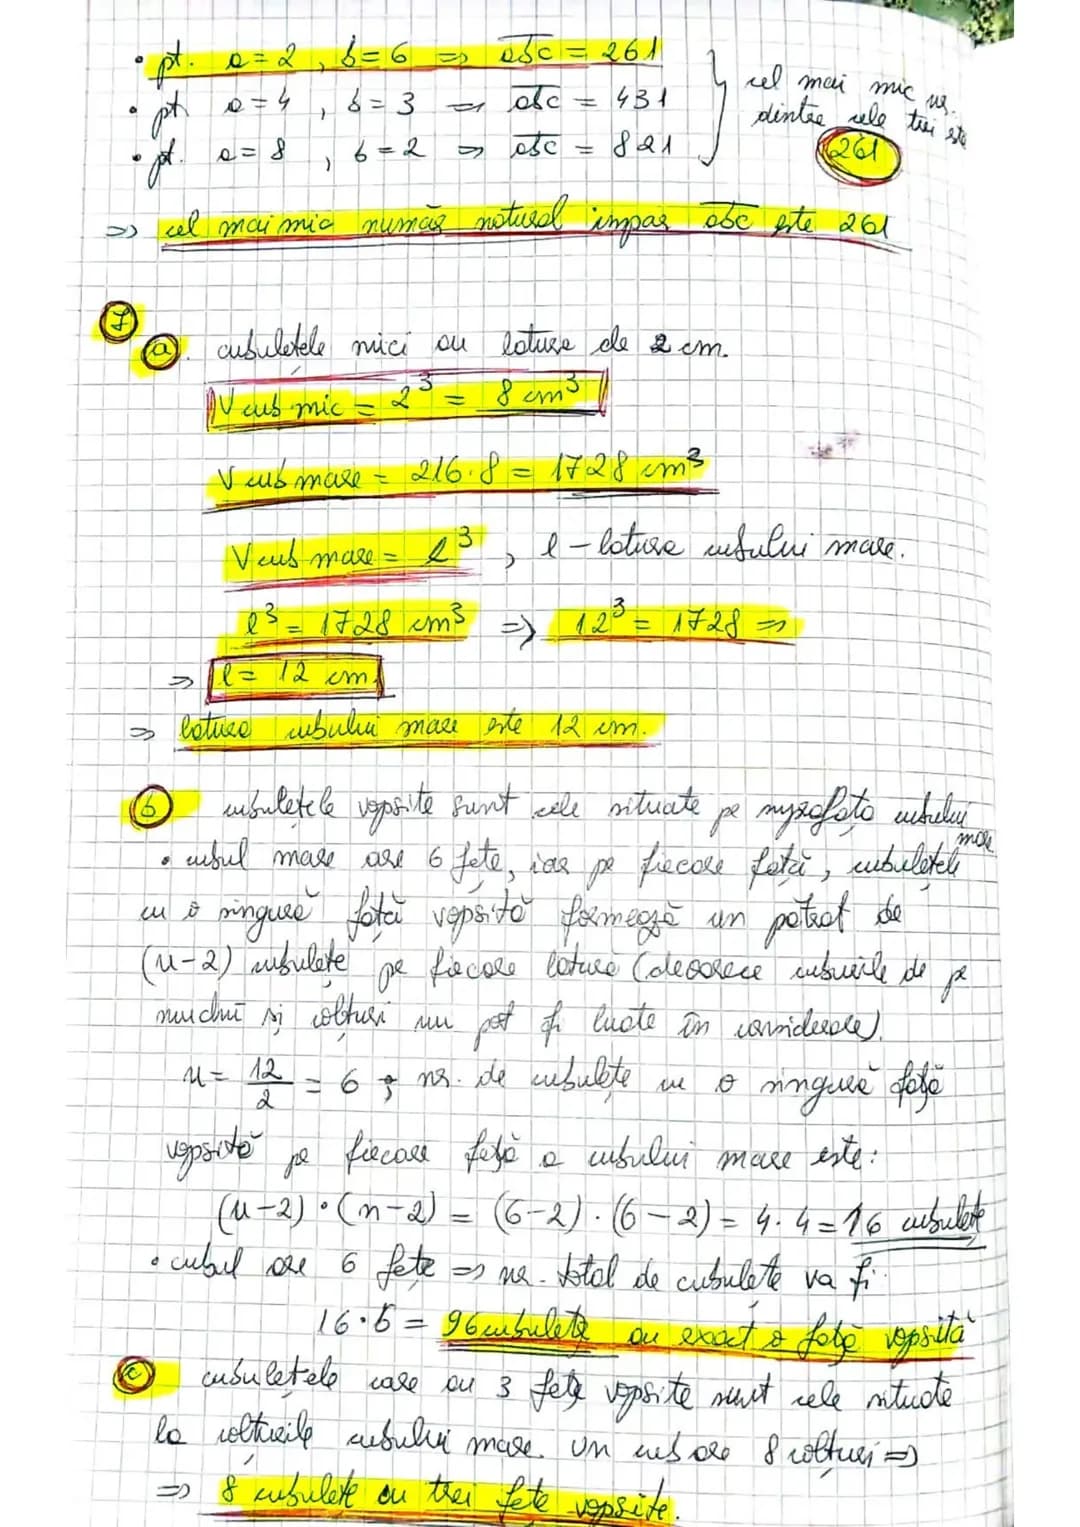 • pt. a = 2 , b = 6 => abc = 261
• pt a = 4 , b = 3 => abc = 431
• pt. a = 8 , b = 2 => abc = 821
cel mai mic nr.
dintre cele trei este
261
=> cel mai mic număr natural impar abc este 261
7
a. cubulețele mici au latura de 2 cm.
V cub mic = 2³ = 8 cm³
V cub mare = 216·8 = 1728 cm³
V cub mare = l³ , l – latura cubului mare.
l³ = 1728 cm³ => 12³ = 1728 =>
=> l = 12 cm.
=> latura cubului mare este 12 cm.
b cubulețele vopsite sunt cele situate pe suprafața cubului mare
• cubul mare are 6 fețe, iar pe fiecare față, cubulețele
cu o singură față vopsită formează un pătrat de
(n-2) cubulețe pe fiecare latură (deoarece cuburile de pe
muchii și colțuri nu pot fi luate în considerare).
n = 12/2 = 6 ; nr. de cubulețe cu o singură față
vopsită pe fiecare față a cubului mare este:
(n-2)·(n-2) = (6-2)·(6-2) = 4·4 = 16 cubulețe
• cubul are 6 fețe => nr. total de cubulețe va fi
16·6 = 96 cubulețe au exact o față vopsită
c cubulețele care au 3 fețe vopsite sunt cele situate
la colțurile cubului mare. Un cub are 8 colțuri =>
=> 8 cubulețe au trei fețe vopsite.